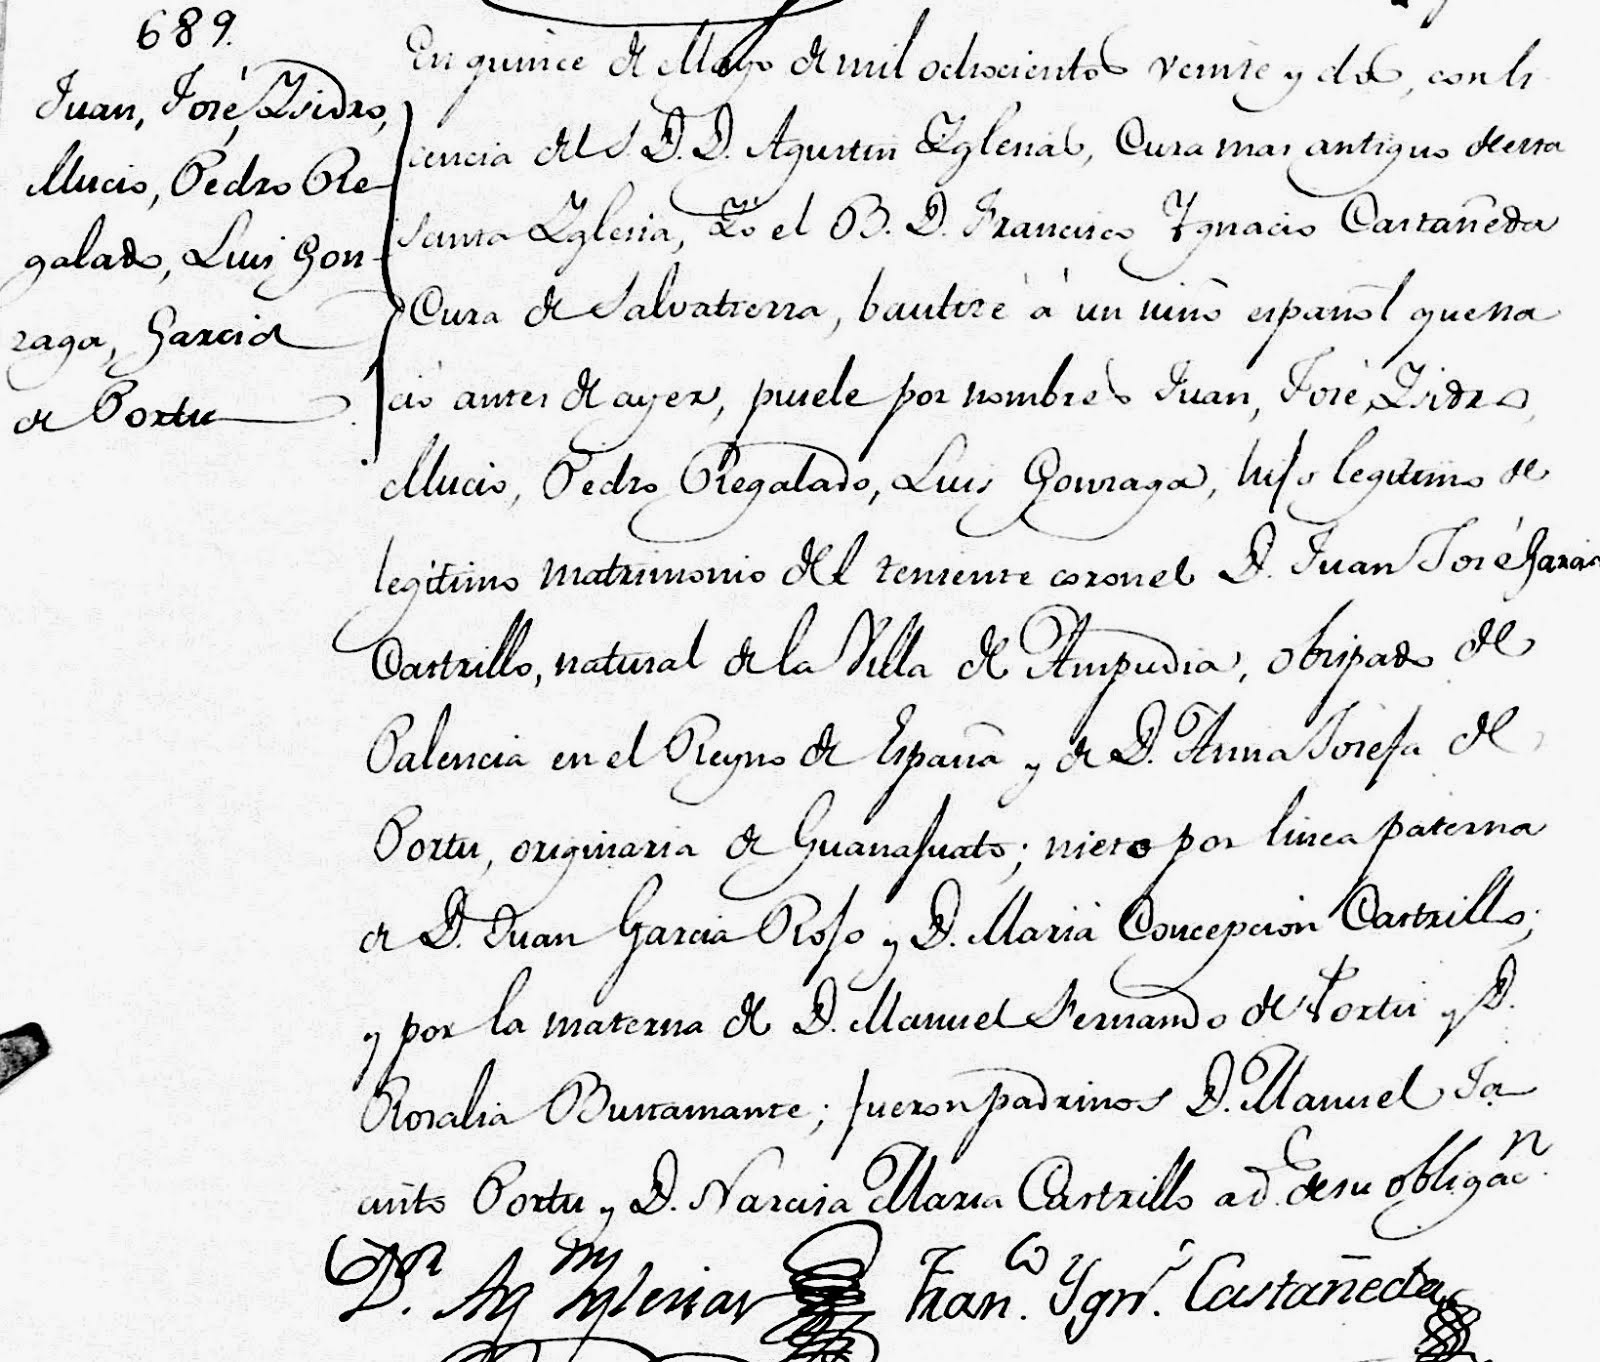 689.
Juan, José, Ysidro,
Mucio, Pedro Re-
galado, Luis Gon-
zaga, Garcia
de Portu
En quince de Mayo de mil ochocientos veinte y dos, con li
cencia del S. D. D. Agustin Yglesias, Cura mas antiguo de esta
Santa Yglesia, Yo el B. D. Francisco Ygnacio Castañeda
Cura de Salvatierra, bautizé á un niño español que na
ció antes de ayer, pusele por nombres Juan, José, Ysidro,
Mucio, Pedro Regalado, Luis Gonzaga, hijo legitimo de
legitimo matrimonio del teniente coronel D. Juan José Garcia
Castrillo, natural de la Villa de Ampudia, obispado de
Palencia en el Reyno de España y de D. Anna Josefa de
Portu, originaria de Guanajuato; nieto por linea paterna
de D. Juan Garcia Rojo y D. Maria Concepcion Castrillo;
y por la materna de D. Manuel Fernando de Portu y D.
Rosalia Bustamante; fueron padrinos D. Manuel Ja
cinto Portu y D. Narcisa Maria Castrillo ad. de su obligac.n
D.r Ag.n Yglesias Fran.co Ygn.o Castañeda